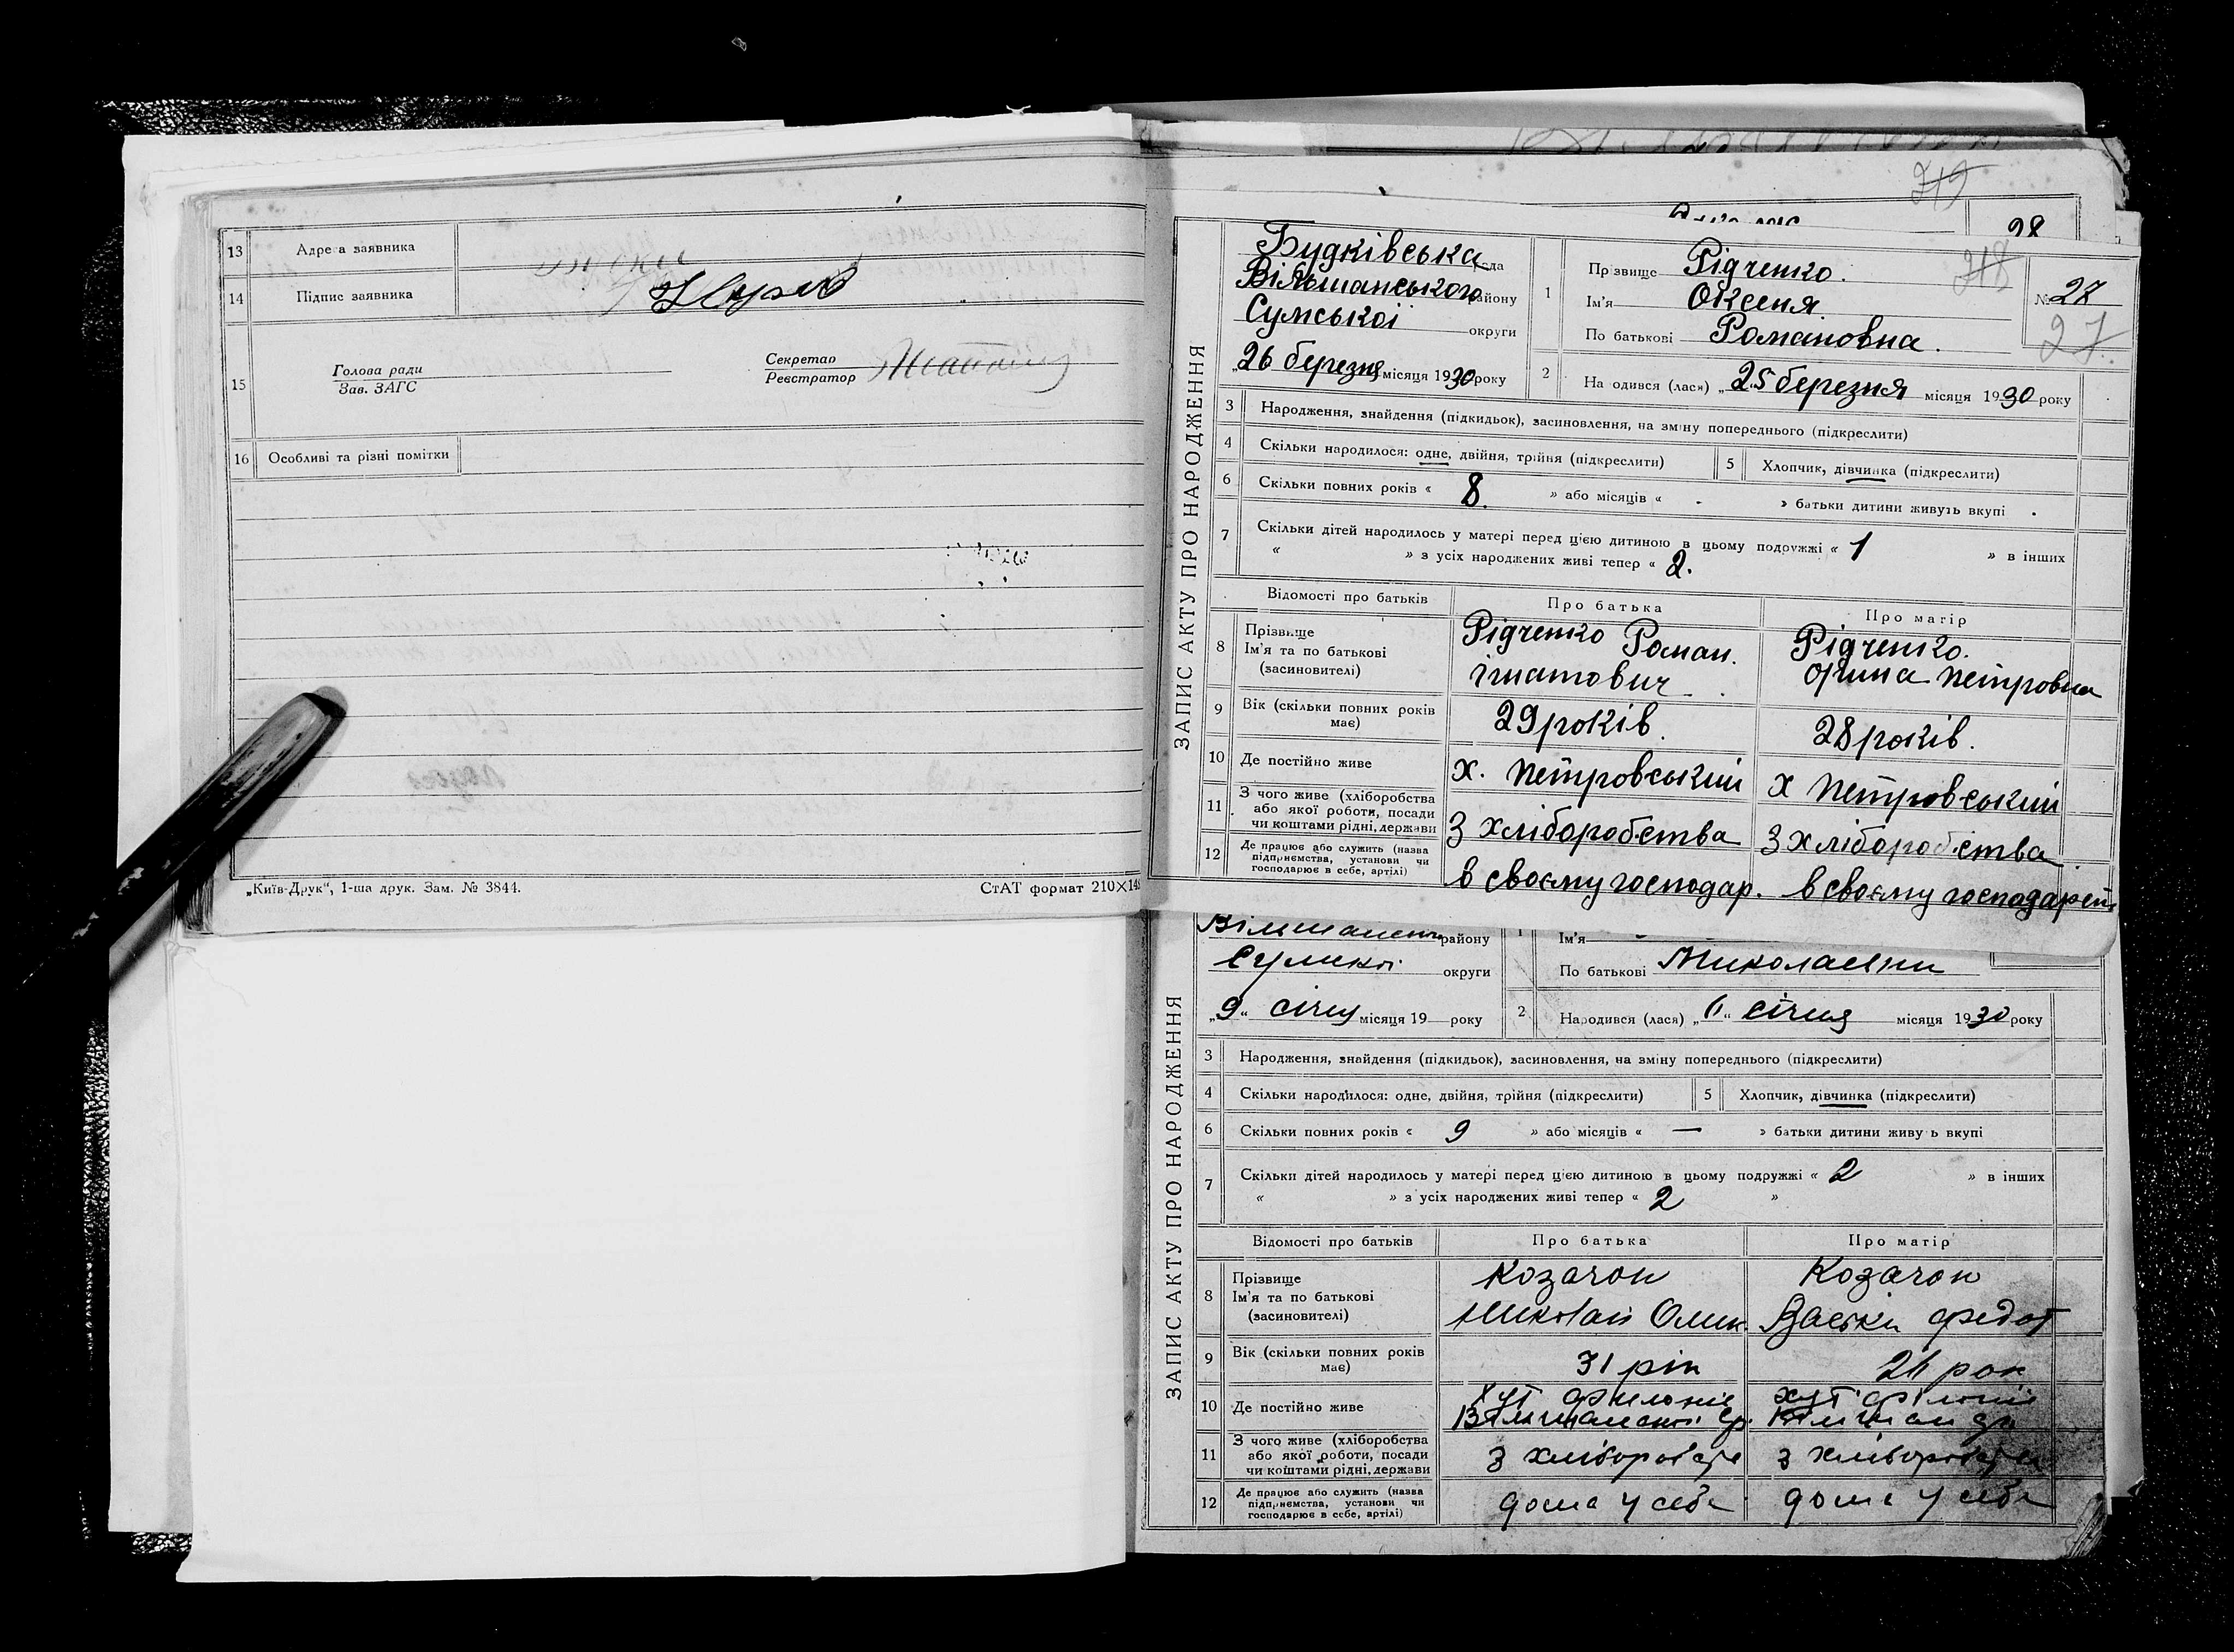 13 Адреса заявника
14 Підпис заявника
15 Голова ради
Зав. ЗАГС
Секретар
Реєстратор
16 Особливі та різні помітки
„Київ-Друк“, 1-ша друк. Зам. № 3844.
СтАТ формат 210×148
249
28
ЗАПИС АКТУ ПРО НАРОДЖЕННЯ
Будківська рада
Вільшанського району
Сумської округи
„26 березня місяця 1930 року
1 Прізвище Рідченко.
Ім'я Оксеня
По батькові Романовна.
248
№ 27
27
2 На одився (лася) „25 березня місяця 1930 року
3 Народження, знайдення (підкидьок), засиновлення, на зміну попереднього (підкреслити)
4 Скільки народилося: одне, двійня, трійня (підкреслити)
5 Хлопчик, дівчинка (підкреслити)
6 Скільки повних років « 8. » або місяців « - » батьки дитини живуть вкупі
7 Скільки дітей народилось у матері перед цією дитиною в цьому подружжі « 1 » в інших
« » з усіх народжених живі тепер « 2.
Відомості про батьків Про батька Про матір
8 Прізвище
Ім'я та по батькові
(засиновителі)
Рідченко Роман.
ігнатович
Рідченко.
Орина петровна
9 Вік (скільки повних років має) 29 років. 28 років.
10 Де постійно живе х. петровський х петровський
11 З чого живе (хліборобства
або якої роботи, посади
чи коштами рідні, держави
З хліборобства З хліборобства
12 Де працює або служить (назва
підприємства, установи чи
господарює в себе, артілі)
в своєму господар. в своєму господарст
ЗАПИС АКТУ ПРО НАРОДЖЕННЯ
району
округи
„9“ січня місяця 19 року
1 Ім'я
По батькові Миколаєвни
2 Народився (лася) місяця 1930 року
3 Народження, знайдення (підкидьок), засиновлення, на зміну попереднього (підкреслити)
4 Скільки народилося: одне, двійня, трійня (підкреслити)
5 Хлопчик, дівчинка (підкреслити)
6 Скільки повних років « 9 » або місяців « — » батьки дитини живу ь вкупі
7 Скільки дітей народилось у матері перед цією дитиною в цьому подружжі « 2 » в інших
« » з усіх народжених живі тепер « 2 »
Відомості про батьків Про батька Про матір
8 Прізвище
Ім'я та по батькові
(засиновителі)
Козачок
Миколай Олик.
Козачок
Федот
9 Вік (скільки повних років має) 31 рік
10 Де постійно живе
11 З чого живе (хліборобства
або якої роботи, посади
чи коштами рідні, держави
З хліборобств З хліборобств
12 Де працює або служить (назва
підприємства, установи чи
господарює в себе, артілі)
дома у себе дома у себе